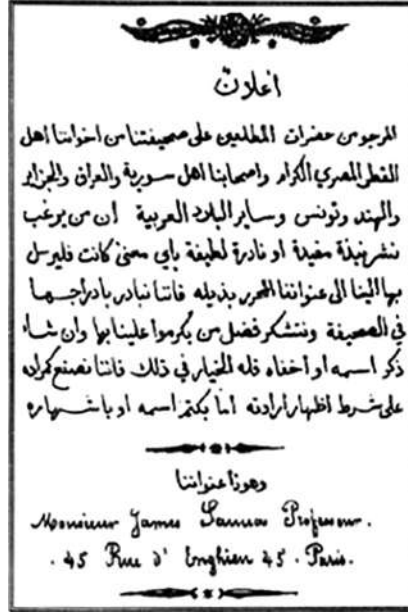 اعلان
المرجو من حضرات المطلعين على صحيفتنا من اخواننا اهل
القطر المصري الكرام واصحابنا اهل سورية والعراق والجزاير
والهند وتونس وساير البلاد العربية ان من يرغب
نشر نبذة مفيدة او نادرة لطيفة باي معنى كانت فليرسل
بها الينا الى عنواننا المحرر بذيله فاننا نبادر بادراجها
في الصحيفة ونتشكر فضل من يكرموا علينا بها وان شاء
ذكر اسمه او أخفاه فله الخيار في ذلك فاننا نصنع كمراده
على شرط اظهار أرادته أما بكتم اسمه او باشهاره
وهوذا عنواننا
Monsieur James Sanua Professeur.
. 45 Rue d' Enghien 45 . Paris.